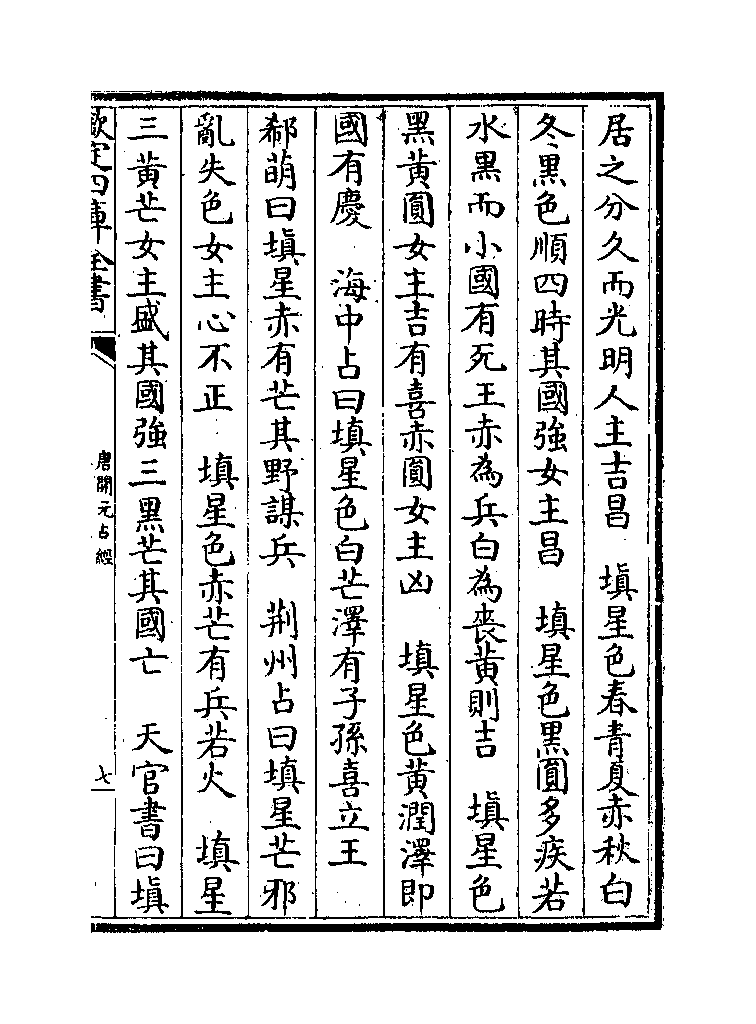 居之分久而光明人主吉昌　填星色春青夏赤秋白
冬黑色順四時其國強女主昌　填星色黑圓多疾若
水黑而小國有死王赤為兵白為喪黃則吉　填星色
黑黃圓女主吉有喜赤圓女主凶　填星色黃潤澤即
國有慶　海中占曰填星色白芒澤有子孫喜立王
郗萌曰填星赤有芒其野謀兵　荆州占曰填星芒邪
亂失色女主心不正　填星色赤芒有兵若火　填星
三黃芒女主盛其國強三黑芒其國亡　天官書曰填
欽定四庫全書
唐開元占經
七